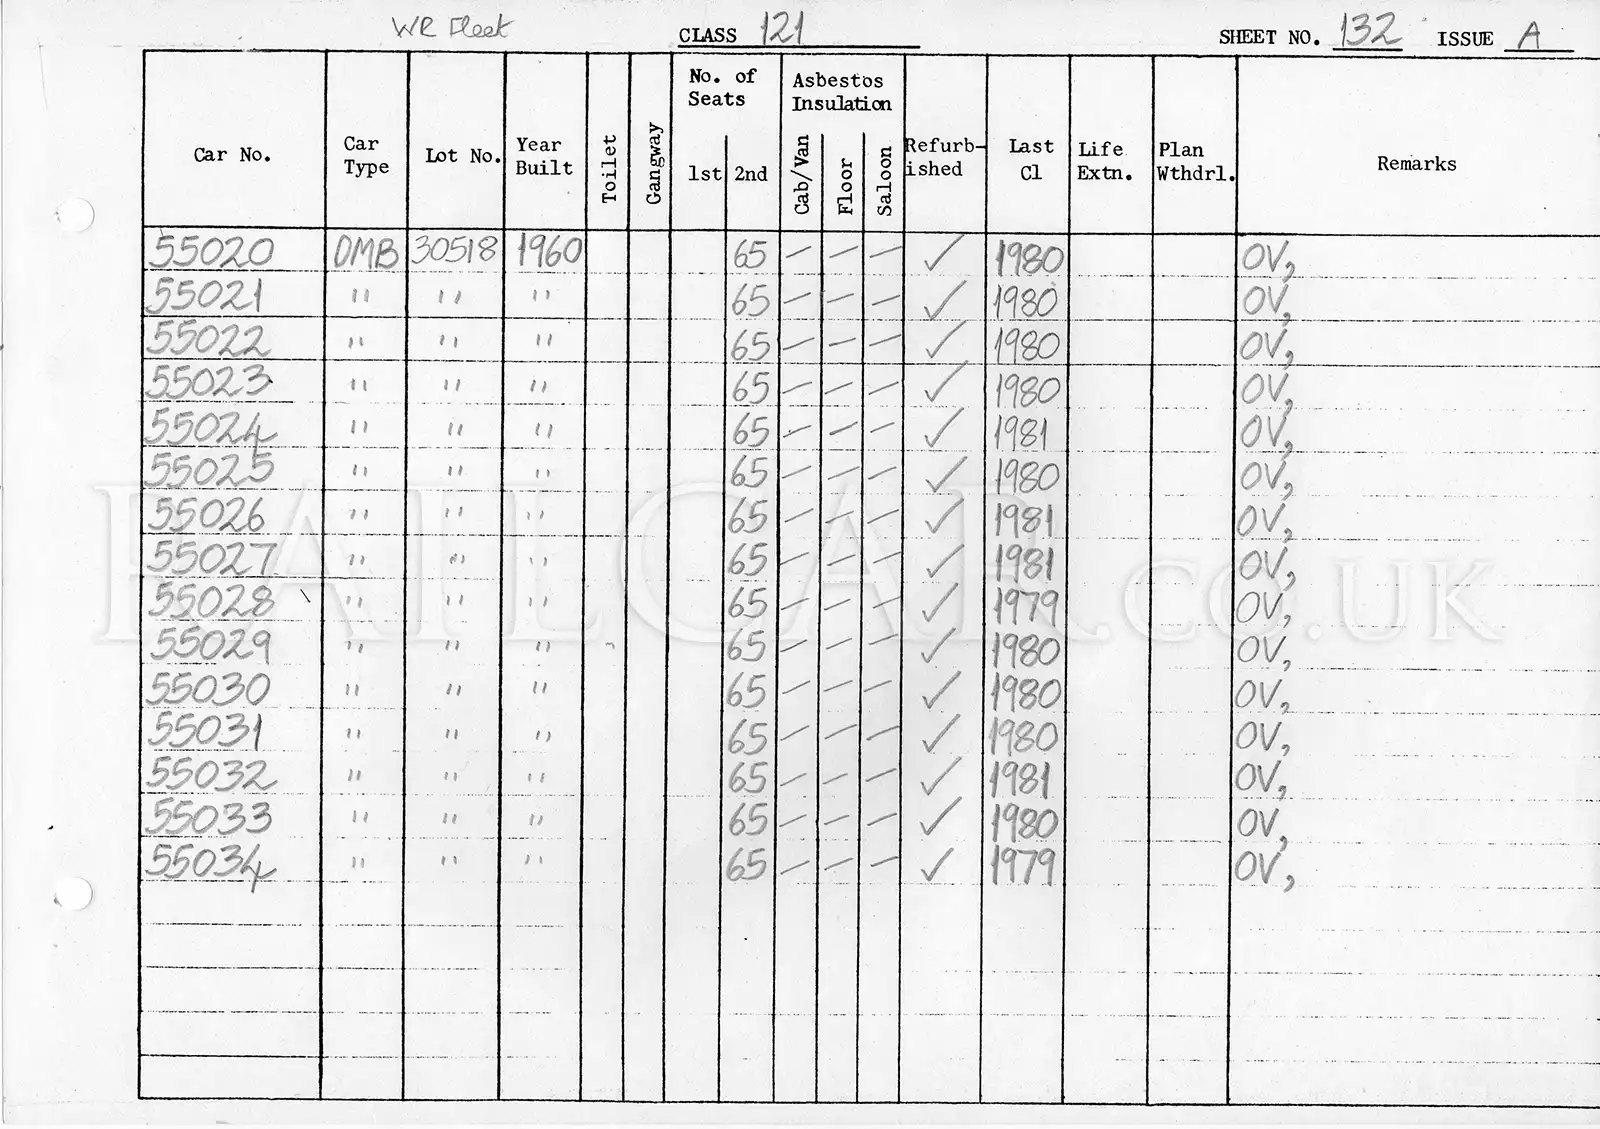 WR Fleet CLASS 121 SHEET NO. 132 ISSUE A
Car No. Car Type Lot No. Year Built Toilet Gangway No. of Seats 1st 2nd Asbestos Insulation Cab/Van Floor Saloon Refurb-ished Last Cl Life Extn. Plan Wthdrl. Remarks
55020 DMB 30518 1960 65 — — — ✓ 1980 OV,
55021 " " " 65 — — — ✓ 1980 OV,
55022 " " " 65 — — — ✓ 1980 OV,
55023 " " " 65 — — — ✓ 1980 OV,
55024 " " " 65 — — — ✓ 1981 OV,
55025 " " " 65 — — — ✓ 1980 OV,
55026 " " " 65 — — — ✓ 1981 OV,
55027 " " " 65 — — — ✓ 1981 OV,
55028 " " " 65 — — — ✓ 1979 OV,
55029 " " " 65 — — — ✓ 1980 OV,
55030 " " " 65 — — — ✓ 1980 OV,
55031 " " " 65 — — — ✓ 1980 OV,
55032 " " " 65 — — — ✓ 1981 OV,
55033 " " " 65 — — — ✓ 1980 OV,
55034 " " " 65 — — — ✓ 1979 OV,
RAILCAR.CO.UK